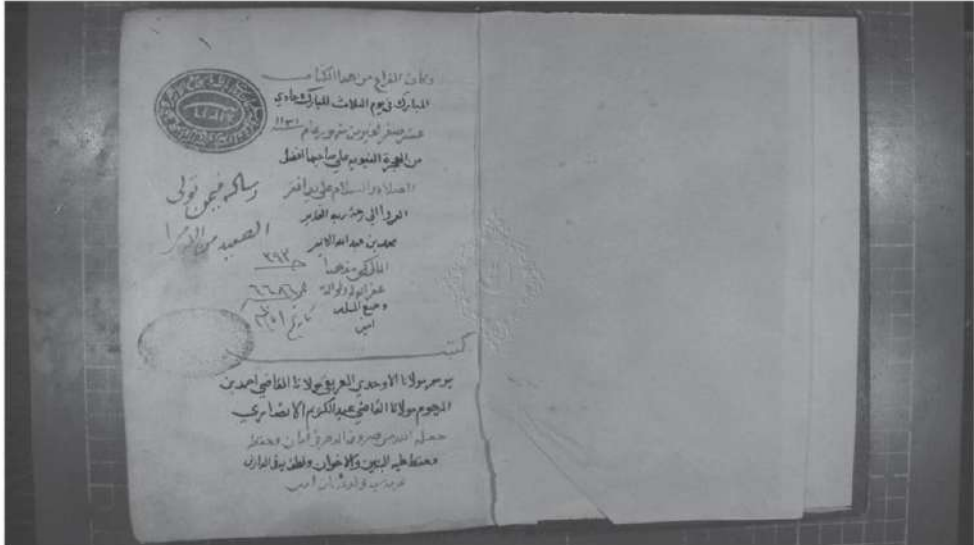 وكان الفراغ من هذا الكتاب
المبارك في يوم الثلاث المبارك حادي
عشر صفر الخير من شهور عام ١١٣١
من الهجرة النبوية على صاحبها افضل
الصلاة والسلام على يد افقر
الورا الى رحمة ربه القدير
محمد بن عبد الله
المالكي مذهبا
غفر الله له ولوالديه
وجميع المسلمين
امين
رسالة فيمن تولى
الصعيد من الامرا
٣٩٢
تاريخ
كتب
برسم مولانا الاوحدي العريق مولانا القاضي احمد بن
المرحوم مولانا القاضي عبد الكريم الانصاري
جعله الله من صروف الدهر في امان وحفظ
وحفظ عليه البنين والاخوان ولطف به في الدارين
امين